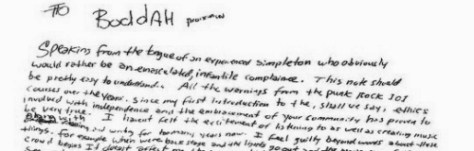 To BoddAH
Speaking from the tongue of an experienced simpleton who obviously
would rather be an emasculated, infantile complainee. This note should
be pretty easy to understand. All the warnings from the punk rock 101
courses over the years. Since my first introduction to the, shall we say, ethics
involved with independence and the embracement of your community has proven to
be very true. I haven't felt the excitement of listening to as well as creating music
along with and writing for too many years now. I feel guilty beyond words about these
things. for example when we're back stage and the lights go out and the
crowd begins